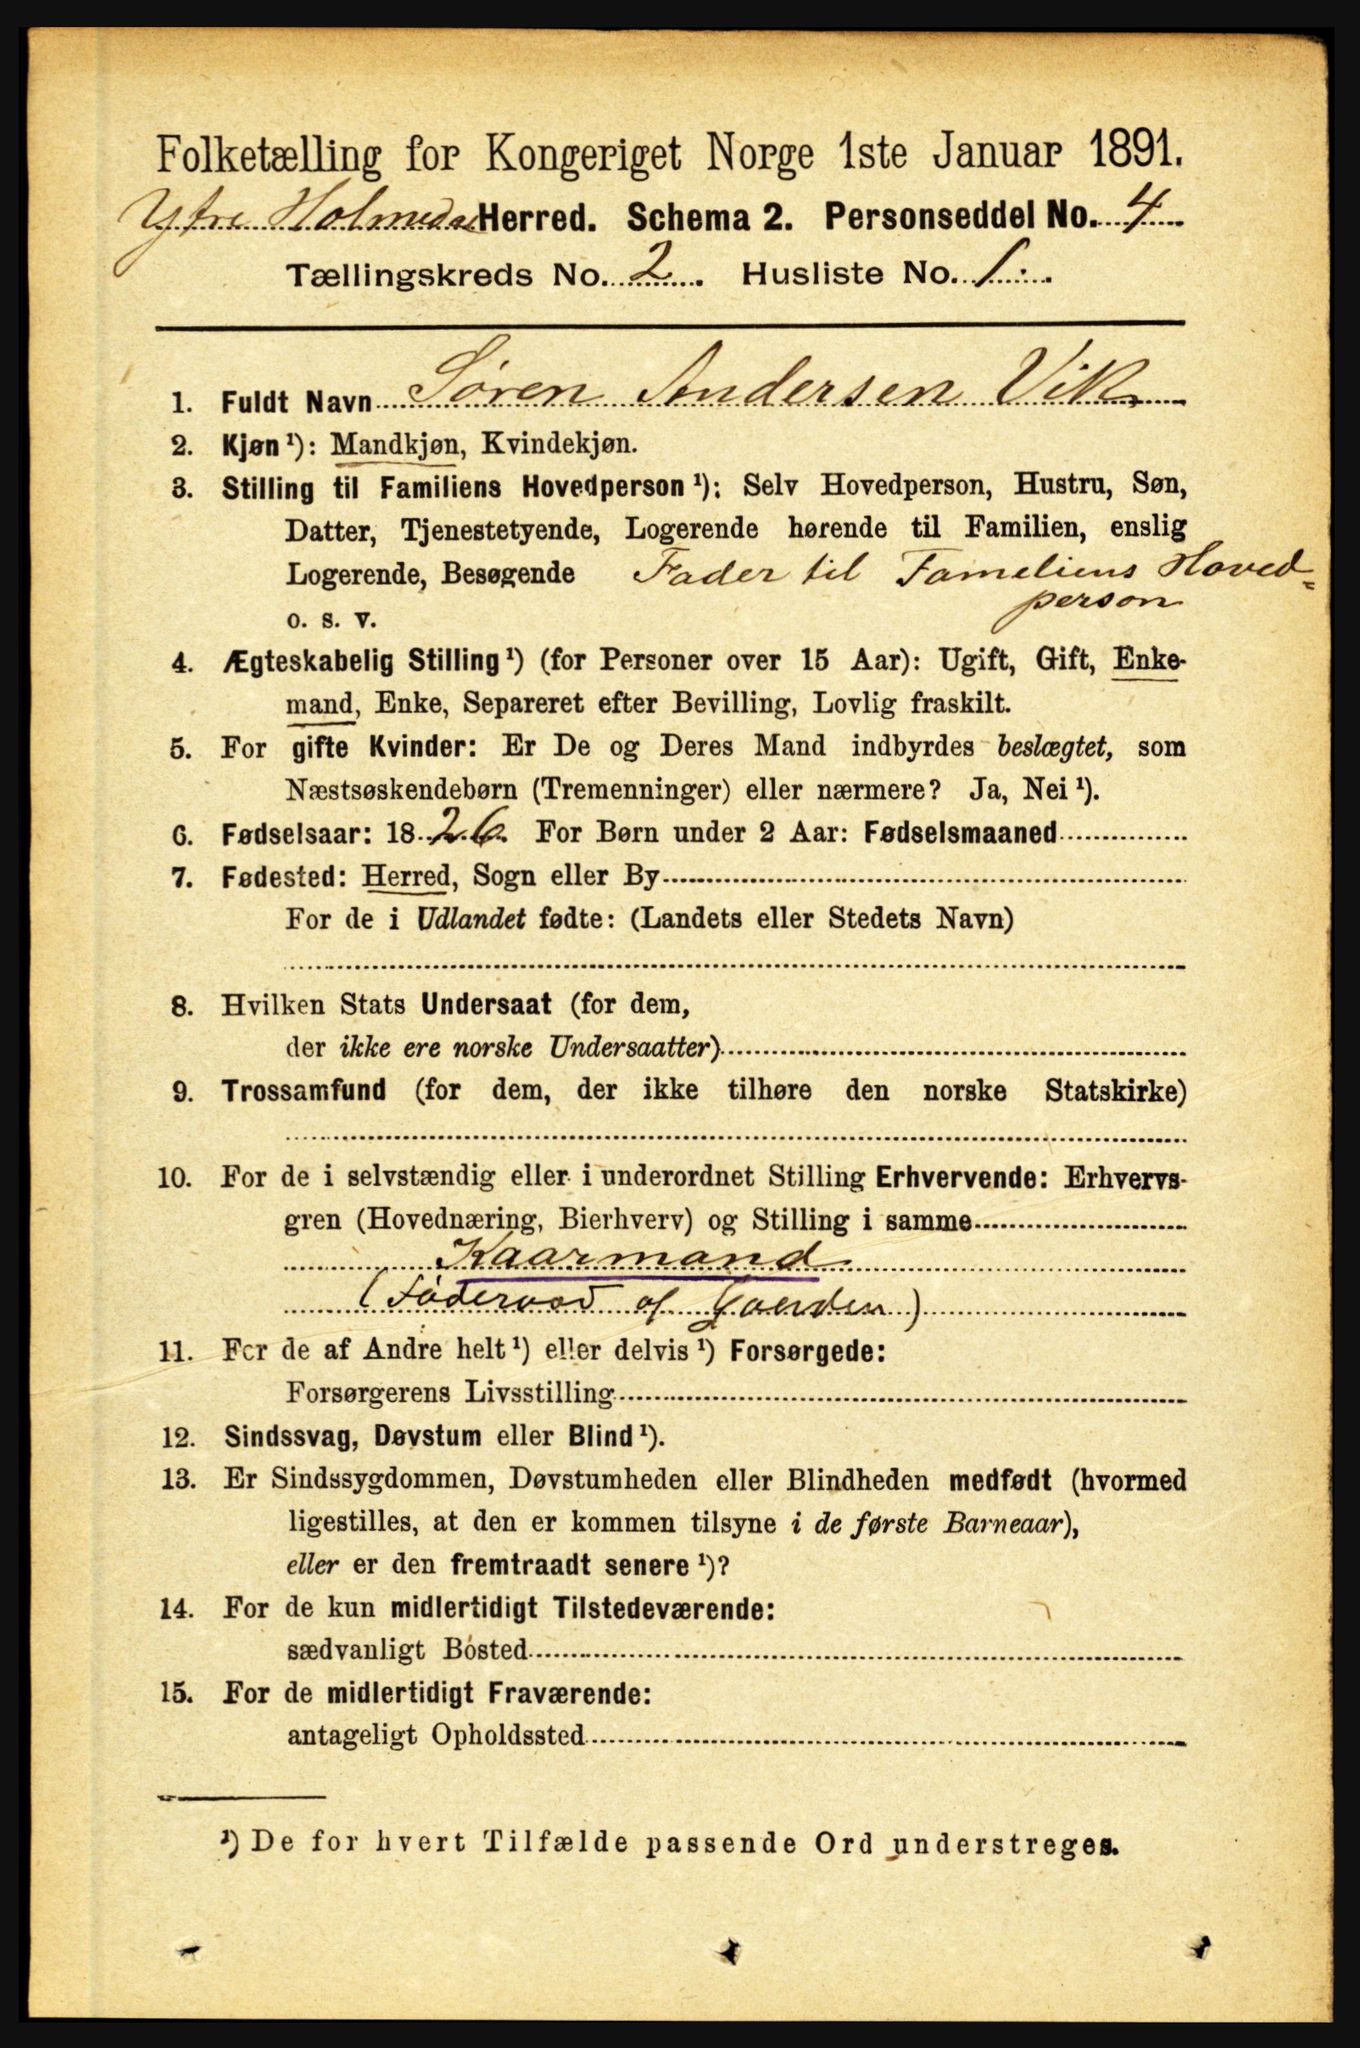 Folketælling for Kongeriget Norge 1ste Januar 1891.
Ytre Holmedal Herred. Schema 2. Personseddel No. 4
Tællingskreds No. 2. Husliste No. 1.
1. Fuldt Navn Søren Andersen Vik
2. Kjøn ¹): Mandkjøn, Kvindekjøn.
3. Stilling til Familiens Hovedperson ¹): Selv Hovedperson, Hustru, Søn,
Datter, Tjenestetyende, Logerende hørende til Familien, enslig
Logerende, Besøgende Fader til Fameliens Hoved=
person
o. s. v.
4. Ægteskabelig Stilling ¹) (for Personer over 15 Aar): Ugift, Gift, Enke-
mand, Enke, Separeret efter Bevilling, Lovlig fraskilt.
5. For gifte Kvinder: Er De og Deres Mand indbyrdes beslægtet, som
Næstsøskendebørn (Tremenninger) eller nærmere? Ja, Nei ¹).
6. Fødselsaar: 1826. For Børn under 2 Aar: Fødselsmaaned
7. Fødested: Herred, Sogn eller By
For de i Udlandet fødte: (Landets eller Stedets Navn)
8. Hvilken Stats Undersaat (for dem,
der ikke ere norske Undersaatter)
9. Trossamfund (for dem, der ikke tilhøre den norske Statskirke)
10. For de i selvstændig eller i underordnet Stilling Erhvervende: Erhvervs-
gren (Hovednæring, Bierhverv) og Stilling i samme
Kaarmand
(Føderaad af Gaarden)
11. For de af Andre helt ¹) eller delvis ¹) Forsørgede:
Forsørgerens Livsstilling
12. Sindssvag, Døvstum eller Blind ¹).
13. Er Sindssygdommen, Døvstumheden eller Blindheden medfødt (hvormed
ligestilles, at den er kommen tilsyne i de første Barneaar),
eller er den fremtraadt senere ¹)?
14. For de kun midlertidigt Tilstedeværende:
sædvanligt Bosted
15. For de midlertidigt Fraværende:
antageligt Opholdssted
¹) De for hvert Tilfælde passende Ord understreges.